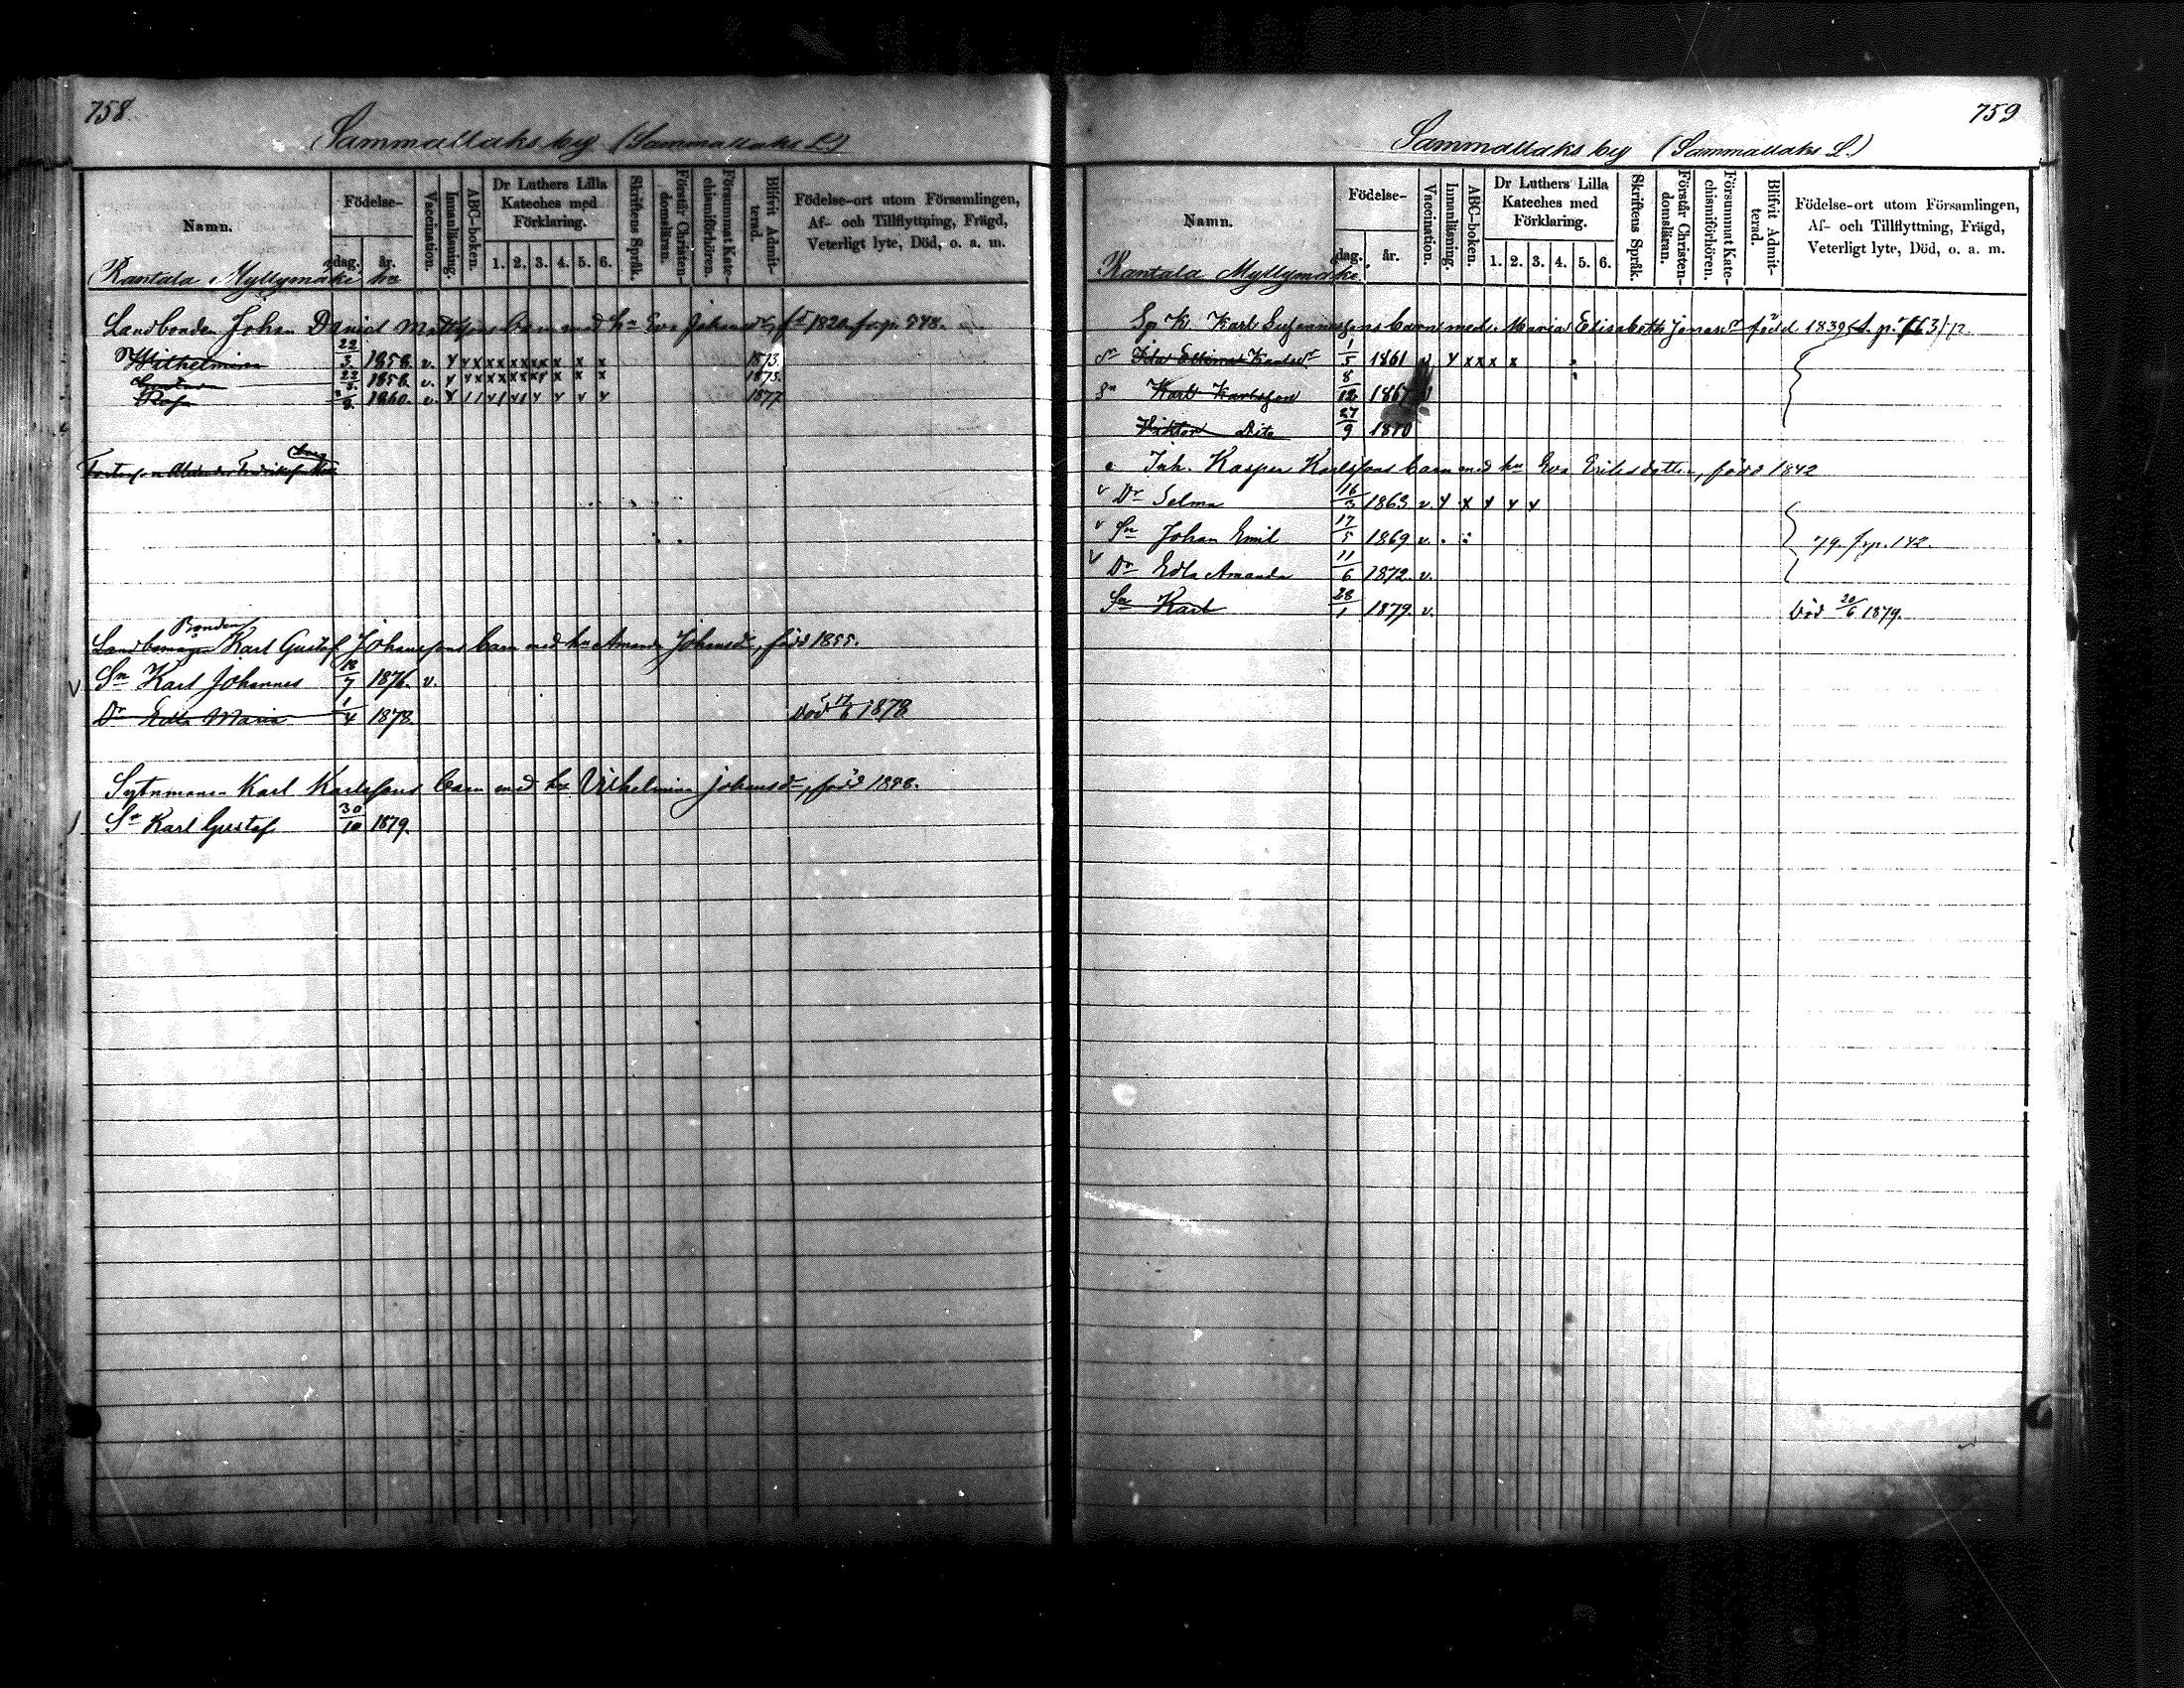 758.
Sammallaks by (Sammallaks L)
Namn.
Födelse-
dag. år.
Vaccination.
Innanläsning.
ABC-boken.
Dr Luthers Lilla
Kateches med
Förklaring.
1. 2. 3. 4. 5. 6.
Skriftens Språk.
Förstår Christen-
domsläran.
Försummat Kate-
chismiförhören.
Blifvit Admit-
terad.
Födelse-ort utom Församlingen,
Af- och Tillflyttning, Frägd,
Veterligt lyte, Död, o. a. m.
Rantala Myllymäke
Landbonden Johan Daniel Mattssons barn med hu Eva Johansdr, fd 1820
Wilhelmina 22/3 1858. v. 1873.
22 1858. v. 1873.
Rosa 1860. v. 1877
Bonden
Karl Gustaf Johanssons barn med hu Amanda Johansdr, född 1855.
v Sn Karl Johannes 18/7 1876. v.
Dr Edla Maria 1/4 1878. Död 17/6 1878
Karl Karlssons barn med hu Vilhelmina Johansdr, född 1848.
Sn Karl Gustaf 30/10 1879.
759
Sammallaks by (Sammallaks L.)
Namn.
Födelse-
dag. år.
Vaccination.
Innanläsning.
ABC-boken.
Dr Luthers Lilla
Kateches med
Förklaring.
1. 2. 3. 4. 5. 6.
Skriftens Språk.
Förstår Christen-
domsläran.
Försummat Kate-
chismiförhören.
Blifvit Admit-
terad.
Födelse-ort utom Församlingen,
Af- och Tillflyttning, Frägd,
Veterligt lyte, Död, o. a. m.
Rantala Myllymäke
Karl barn med Maria Elisabeth Jonasdr född 1839
1/5 1861 v
Sn Karl Karlsson 8/12 1867 v
Viktor Dito 27/9 1870
Inh. Kasper Karlssons barn med hu Eva Eriksdotter, född 1842
v Dr Selma 16/3 1863 v.
v Sn Johan Emil 17/5 1869 v.
79. f. p. 142.
v Dr Edla Amanda 11/6 1872. v.
Sn Karl 28/1 1879. v. Död 20/6 1879.